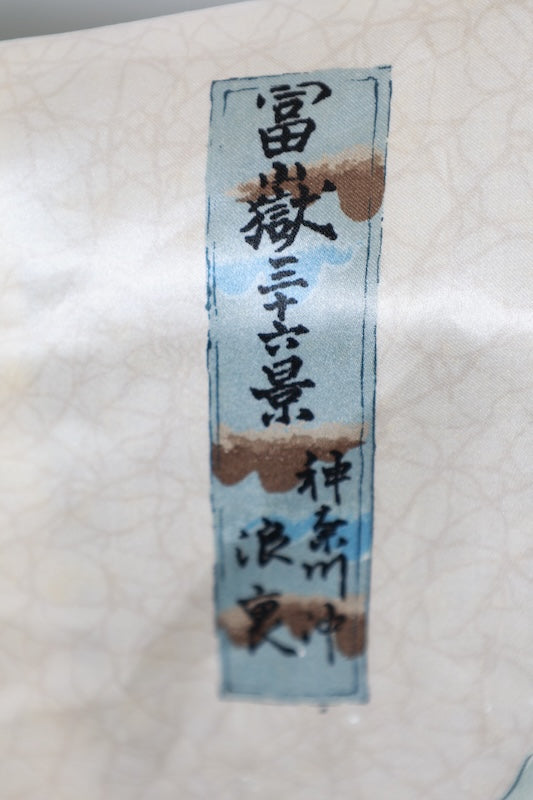 冨嶽三十六景
神奈川沖
浪裏